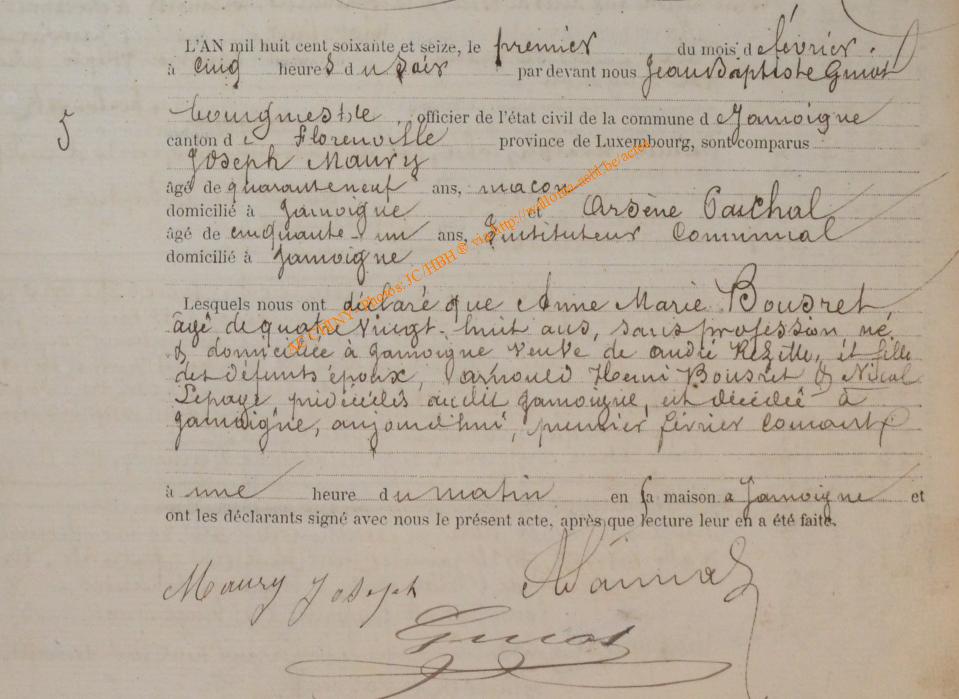 L'AN mil huit cent soixante et seize, le premier du mois de février.
à cinq heures du soir par devant nous Jean Baptiste Guiot
5
bourgmestre, officier de l'état civil de la commune de Jamoigne
canton de Florenville province de Luxembourg, sont comparus
Joseph Maury
âgé de quaranteneuf ans, maçon
domicilié à Jamoigne et Arsène Paschal
âgé de cinquante-un ans, Instituteur Communal
domicilié à Jamoigne
Lesquels nous ont déclaré que Anne Marie Bousret
âgé de quatre vingt-huit ans, sans profession né
& domiciliée à Jamoigne veuve de andré et fille
des défunts époux, arnould Henri Bousret &
Lepage prédécédés audit Jamoigne, est décédée à
Jamoigne, aujourd'hui, premier février courant
à une heure du matin en sa maison a Jamoigne et
ont les déclarants signé avec nous le présent acte, après que lecture leur en a été faite.
Maury Joseph
Guiot
Act CHINY - Photos: JC/HBH @ via http://wallonia-asbl.be/actes